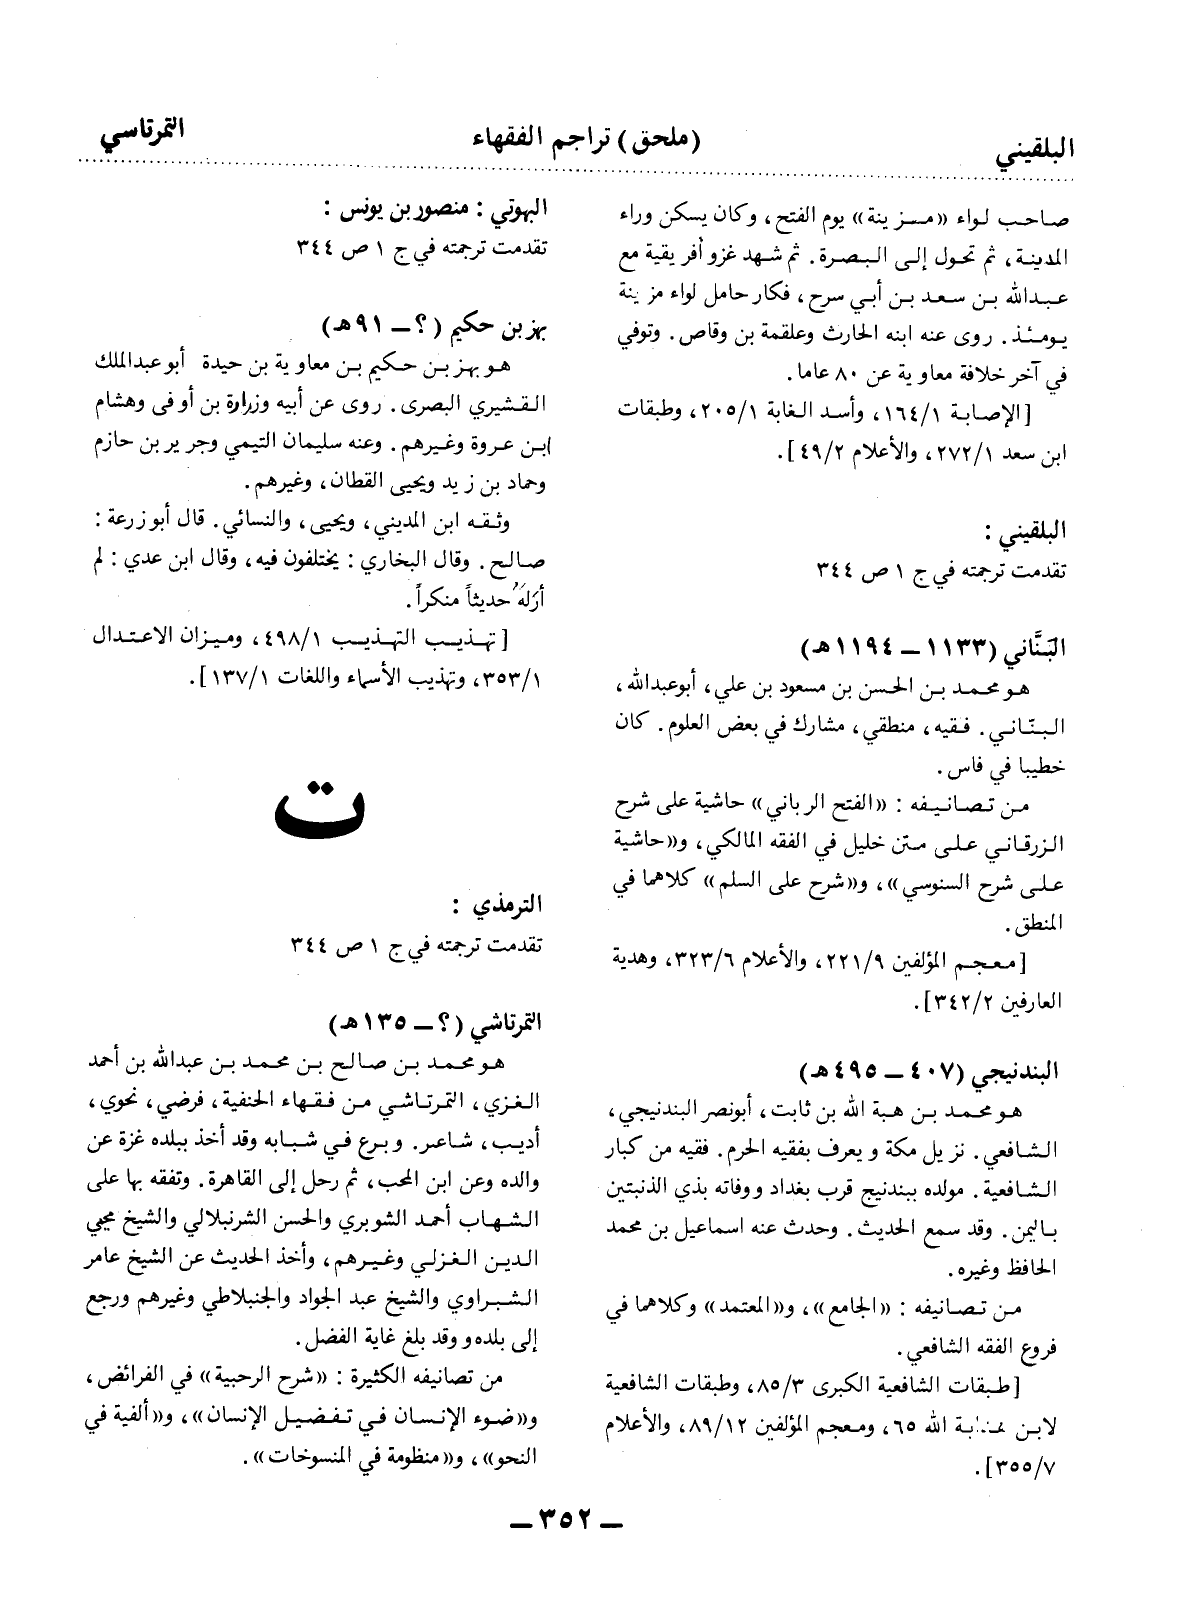 البلقيني
(ملحق) تراجم الفقهاء
التمرتاسي
صاحب لواء «مزينة» يوم الفتح، وكان يسكن وراء
المدينة، ثم تحول إلى البصرة. ثم شهد غزو أفريقية مع
عبدالله بن سعد بن أبي سرح، فكار حامل لواء مزينة
يومئذ. روى عنه ابنه الحارث وعلقمة بن وقاص. وتوفي
في آخر خلافة معاوية عن ٨٠ عاما.
[الإصابة ١٦٤/١، وأسد الغابة ٢٠٥/١، وطبقات
ابن سعد ٢٧٢/١، والأعلام ٤٩/٢].
البلقيني :
تقدمت ترجمته في ج ١ ص ٣٤٤
البَنَّاني (١١٣٣ ــ ١١٩٤هـ)
هو محمد بن الحسن بن مسعود بن علي، أبوعبدالله،
البنّاني. فقيه، منطقي، مشارك في بعض العلوم. كان
خطيبا في فاس.
من تصانيفه : «الفتح الرباني» حاشية على شرح
الزرقاني على متن خليل في الفقه المالكي، و«حاشية
على شرح السنوسي»، و«شرح على السلم» كلاهما في
المنطق.
[معجم المؤلفين ٢٢١/٩، والأعلام ٣٢٣/٦، وهدية
العارفين ٣٤٢/٢].
البندنيجي (٤٠٧ ــ ٤٩٥هـ)
هو محمد بن هبة الله بن ثابت، أبونصر البندنيجي،
الشافعي. نزيل مكة ويعرف بفقيه الحرم. فقيه من كبار
الشافعية. مولده ببندنيج قرب بغداد ووفاته بذي الذنبتين
باليمن. وقد سمع الحديث. وحدث عنه اسماعيل بن محمد
الحافظ وغيره.
من تصانيفه : «الجامع»، و«المعتمد» وكلاهما في
فروع الفقه الشافعي.
[طبقات الشافعية الكبرى ٨٥/٣، وطبقات الشافعية
لابن هداية الله ٦٥، ومعجم المؤلفين ٨٩/١٢، والأعلام
٣٥٥/٧].
البهوتي : منصور بن يونس :
تقدمت ترجمته في ج ١ ص ٣٤٤
بهز بن حكيم (؟ ــ ٩١هـ)
هو بهز بن حكيم بن معاوية بن حيدة أبو عبدالملك
القشيري البصرى. روى عن أبيه وزرارة بن أوفى وهشام
ابن عروة وغيرهم. وعنه سليمان التيمي وجرير بن حازم
وحماد بن زيد ويحيى القطان، وغيرهم.
وثقه ابن المديني، ويحيى، والنسائي. قال أبوزرعة :
صالح. وقال البخاري : يختلفون فيه، وقال ابن عدي : لم
أرَلهَُ حديثاً منكراً.
[تهذيب التهذيب ٤٩٨/١، وميزان الاعتدال
٣٥٣/١، وتهذيب الأسماء واللغات ١٣٧/١].
ت
الترمذي :
تقدمت ترجمته في ج ١ ص ٣٤٤
التمرتاشي (؟ ــ ١٣٥هـ)
هو محمد بن صالح بن محمد بن عبدالله بن أحمد
الغزي، التمرتاشي من فقهاء الحنفية، فرضي، نحوي،
أديب، شاعر. وبرع في شبابه وقد أخذ ببلده غزة عن
والده وعن ابن المحب، ثم رحل إلى القاهرة. وتفقه بها على
الشهاب أحمد الشوبري والحسن الشرنبلالي والشيخ محيي
الدين الغزلي وغيرهم، وأخذ الحديث عن الشيخ عامر
الشبراوي والشيخ عبد الجواد والجنبلاطي وغيرهم ورجع
إلى بلده و وقد بلغ غاية الفضل.
من تصانيفه الكثيرة : «شرح الرحبية» في الفرائض،
و«ضوء الإنسان في تفضيل الإنسان»، و«ألفية في
النحو»، و«منظومة في المنسوخات».
ــ ٣٥٢ ــ